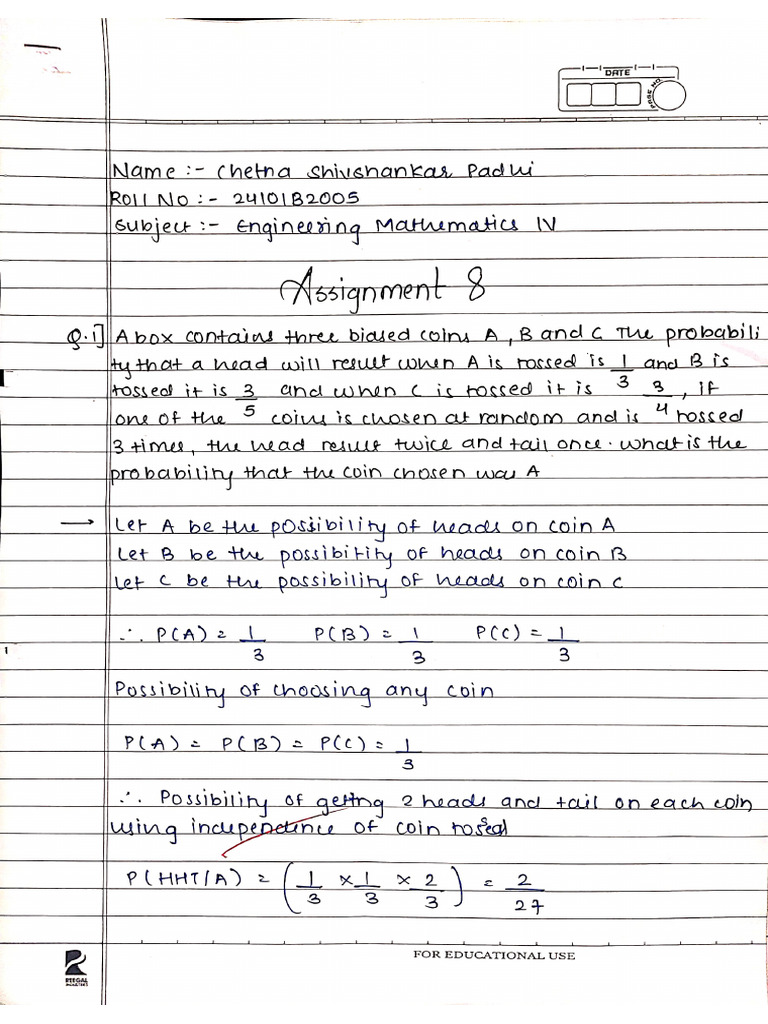 DATE
PAGE NO.
Name :- Chetna Shivshankar Padhi
Roll No :- 24101B2005
Subject :- Engineering Mathematics IV
Assignment 8
Q.1] A box contains three biased coins A, B and C The probabili
ty that a head will result when A is tossed is 1/3 and B is
tossed it is 3/5 and when C is tossed it is 3/4, if
one of the coins is chosen at random and is tossed
3 times, the head result twice and tail once. What is the
probability that the coin chosen was A
→ Let A be the possibility of heads on coin A
Let B be the possibitity of heads on coin B
Let C be the possibility of heads on coin C
∴ P(A) = 1/3 P(B) = 1/3 P(C) = 1/3
Possibility of choosing any coin
P(A) = P(B) = P(C) = 1/3
∴ Possibility of getting 2 heads and tail on each coin
using independence of coin tosed
P(HHT/A) = (1/3 × 1/3 × 2/3) = 2/27
FOR EDUCATIONAL USE
REEGAL